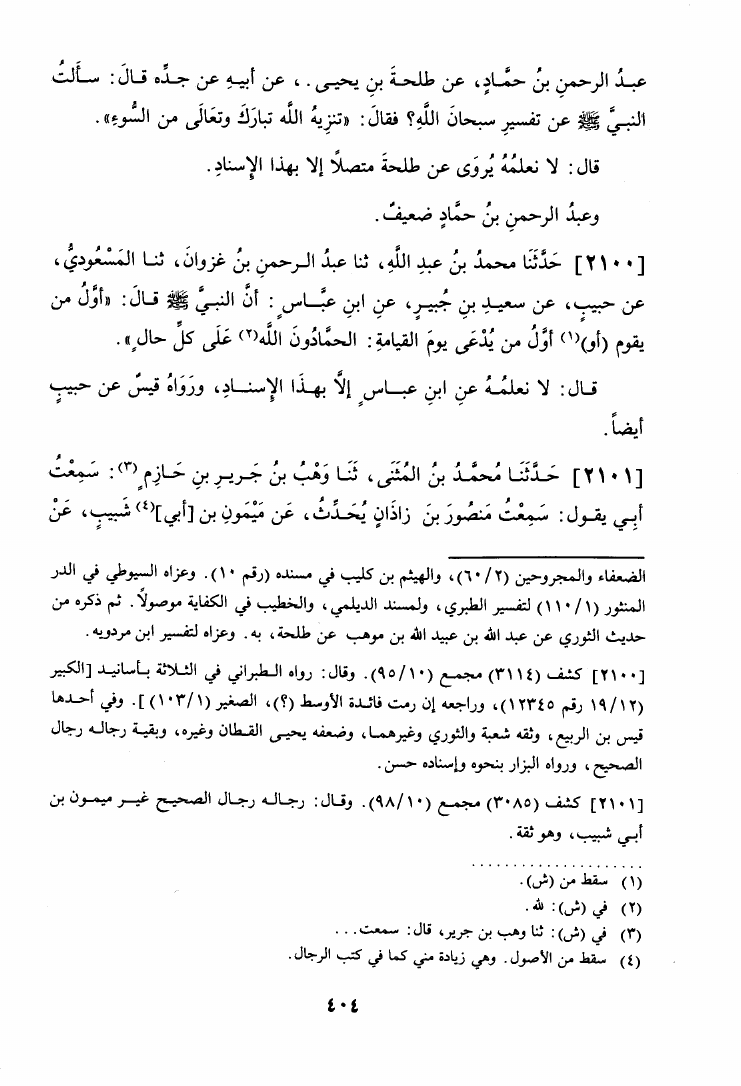 عبـدُ الرحمنِ بنُ حمَّـادٍ، عن طلحـةَ بنِ يحيـى . . ، عن أبيـهِ عن جـدِّه قـالَ: سـأَلتُ
النبـيَّ ﷺ عن تفسيرِ سبحانَ اللَّهِ؟ فقالَ: «تنزيهُ اللَّه تبارَكَ وتعَالَى من السُّوءِ».
قال: لا نعلمُهُ يُروَى عن طلحةَ متصلاً إلا بهذا الإِسنادِ.
وعبدُ الرحمنِ بنُ حمَّادٍ ضعيفٌ.
[٢١٠٠] حَدَّثَنَا محمدُ بنُ عبدِ اللَّهِ، ثنا عبدُ الـرحمنِ بنُ غزوانَ، ثنـا المَسْعُوديُّ،
عن حبيبٍ، عن سعيـدِ بنِ جُبيـرٍ، عنِ ابنِ عبَّـاسٍ: أنَّ النبيَّ ﷺ قـالَ: «أوَّلُ من
يقوم (أو)(١) أوَّلُ من يُدْعَى يومَ القيامةِ: الحمَّادُونَ اللَّه(٢) عَلَى كلِّ حالٍ».
قـال: لا نعلمُـهُ عنِ ابنِ عبـاسٍ إلَّا بهـذَا الإِسنـادِ، ورَوَاهُ قيسٌ عن حبيبٍ
أيضاً.
[٢١٠١] حَـدَّثَنَـا مُحمَّـدُ بنُ المُثنَى، ثَنَـا وَهْبُ بنُ جَريـرِ بنِ حَـازِمٍ(٣): سَمِعْتُ
أبِـي يقـول: سَمِعْتُ مَنصُورَ بنَ زاذَانٍ يُحَدِّثُ، عَن مَيْمُونِ بن [أبي](٤) شَبِيبٍ، عَنْ
الضعفاء والمجروحين (٦٠/٢)، والهيثم بن كليب في مسنده (رقم ١٠). وعزاه السيوطي في الدر
المنثور (١١٠/١) لتفسير الطبري، ولمسند الديلمي، والخطيب في الكفاية موصولاً. ثم ذكره من
حديث الثوري عن عبد الله بن عبيد الله بن موهب عن طلحة، به. وعزاه لتفسير ابن مردويه.
[٢١٠٠] كشف (٣١١٤) مجمع (٩٥/١٠). وقال: رواه الطبراني في الثلاثة بأسانيد [الكبير
(١٩/١٢ رقم ١٢٣٤٥)، وراجعه إن رمت فائدة الأوسط (؟)، الصغير (١٠٣/١)]. وفي أحدها
قيس بن الربيع، وثقه شعبة والثوري وغيرهما، وضعفه يحيى القطان وغيره، وبقية رجاله رجال
الصحيح، ورواه البزار بنحوه وإسناده حسن.
[٢١٠١] كشف (٣٠٨٥) مجمع (٩٨/١٠). وقال: رجاله رجال الصحيح غير ميمون بن
أبي شبيب، وهو ثقة.
(١) سقط من (ش).
(٢) في (ش): لله.
(٣) في (ش): ثنا وهب بن جرير، قال: سمعت. . .
(٤) سقط من الأصول. وهي زيادة مني كما في كتب الرجال.
٤٠٤